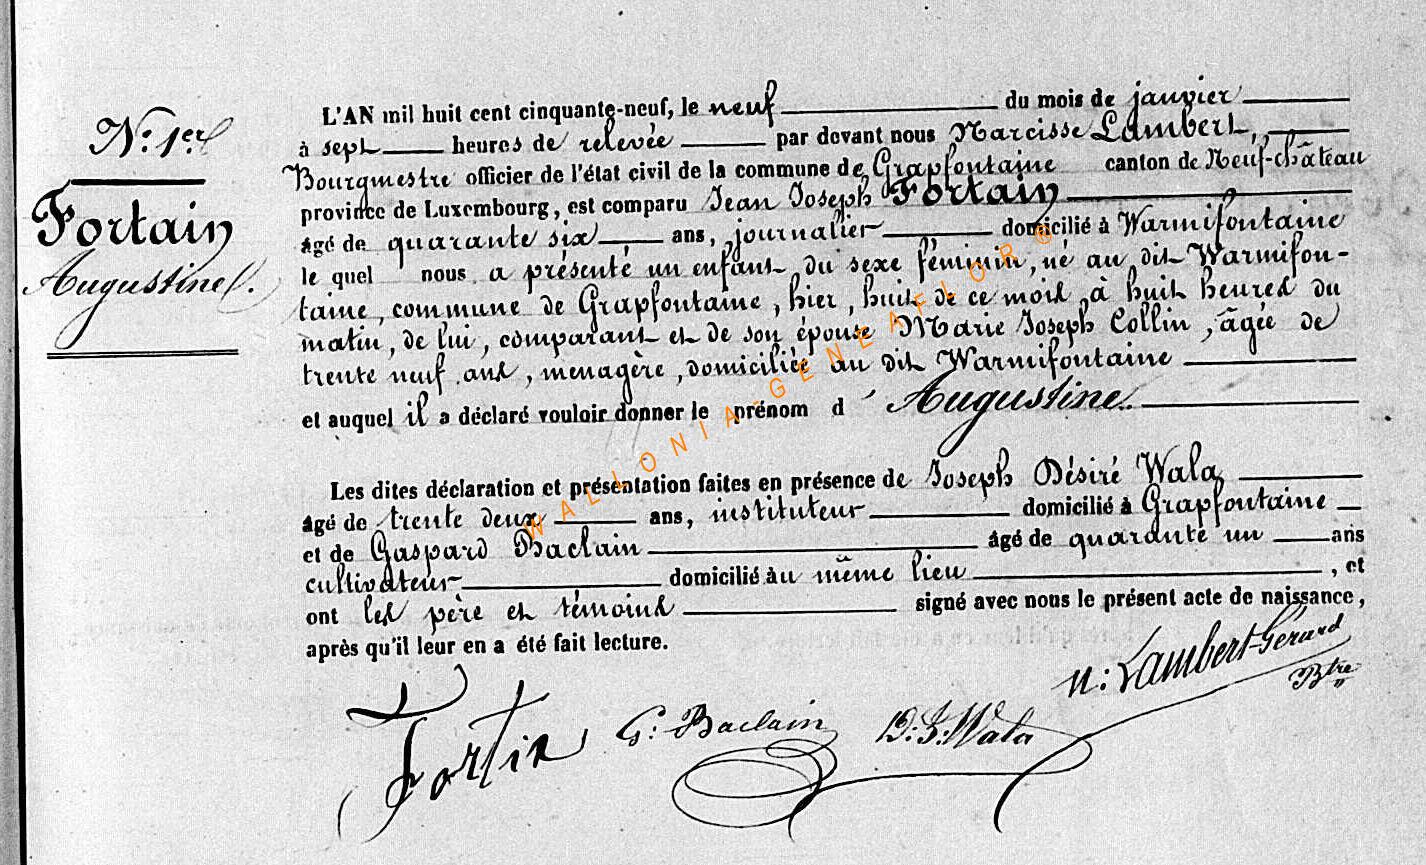 N° 1er
Fortain
Augustine.
L'AN mil huit cent cinquante-neuf, le neuf du mois de janvier
à sept heures de relevée par devant nous Narcisse Lambert,
Bourgmestre officier de l'état civil de la commune de Grapfontaine canton de Neuf-château
province de Luxembourg, est comparu Jean Joseph Fortain
âgé de quarante six ans, journalier domicilié à Warmifontaine
le quel nous a présenté un enfant du sexe féminin, né au dit Warmifon-
taine, commune de Grapfontaine, hier, huit de ce mois à huit heures du
matin, de lui, comparant et de son épouse Marie Joseph Collin, âgée de
trente neuf ans, menagère, domiciliée au dit Warmifontaine
et auquel il a déclaré vouloir donner le prénom d'Augustine.
Les dites déclaration et présentation faites en présence de Joseph Désiré Wala
âgé de trente deux ans, instituteur domicilié à Grapfontaine
et de Gaspard Baclain âgé de quarante un ans
cultivateur domicilié au même lieu , et
ont les père et témoins signé avec nous le présent acte de naissance,
après qu'il leur en a été fait lecture.
Fortin G: Baclain D: J: Wala N: Lambert-Gérard
Btre
WALLONIA-GENEAFLOR®